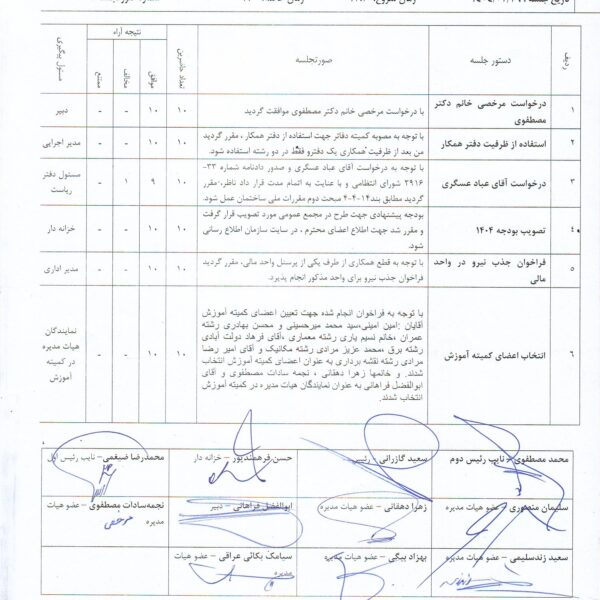 ردیف
دستور جلسه
صورتجلسه
تعداد حاضرین
نتیجه آراء
موافق
مخالف
ممتنع
مسئول پیگیری
۱
درخواست مرخصی خانم دکتر
مصطفوی
با درخواست مرخصی خانم دکتر مصطفوی موافقت گردید
۱۰
۱۰
-
-
دبیر
۲
استفاده از ظرفیت دفتر همکار
با توجه به مصوبه کمیته دفاتر جهت استفاده از دفتر همکار ، مقرر گردید
من بعد از ظرفیت همکاری یک دفترو فقط در دو رشته استفاده شود.
۱۰
۱۰
-
-
مدیر اجرایی
۳
درخواست آقای عباد عسگری
با توجه به درخواست آقای عباد عسگری و صدور دادنامه شماره ۳۳-
۳۹۱۶ شورای انتظامی و با عنایت به اتمام مدت قرار داد ناظر، مقرر
گردید مطابق بند۱۴-۴-۴ مبحث دوم مقررات ملی ساختمان عمل شود.
۱۰
۹
۱
-
مسئول دفتر
ریاست
۴
تصویب بودجه ۱۴۰۴
بودجه پیشنهادی جهت طرح در مجمع عمومی مورد تصویب قرار گرفت
و مقرر شد جهت اطلاع اعضای محترم ، در سایت سازمان اطلاع رسانی
شود.
۱۰
۱۰
-
-
خزانه دار
۵
فراخوان جذب نیرو در واحد
مالی
با توجه به قطع همکاری از طرف یکی از پرسنل واحد مالی، مقرر گردید
فراخوان جذب نیرو برای واحد مذکور انجام پذیرد.
۱۰
۱۰
-
-
مدیر اداری
۶
انتخاب اعضای کمیته آموزش
با توجه به فراخوان انجام شده جهت تعیین اعضای کمیته آموزش
آقایان :امین امینی،سید محمد میرحسینی و محسن بهادری رشته
عمران ،خانم نسیم یاری رشته معماری ،آقای فرهاد دولت آبادی
رشته برق ،محمد عزیز مرادی رشته مکانیک و آقای امیر رضا
مرادی رشته نقشه برداری به عنوان اعضای کمیته آموزش انتخاب
شدند. و خانمها زهرا دهقانی ، نجمه سادات مصطفوی و آقای
ابوالفضل فراهانی به عنوان نمایندگان هیات مدیره در کمیته آموزش
انتخاب شدند.
۱۰
۱۰
-
-
نمایندگان
هیات مدیره
در کمیته
آموزش
محمد مصطفوی - نایب رئیس دوم
سعید گازرانی - رئیس
حسن فرهمندپور - خزانه دار
محمدرضا ضیغمی - نایب رئیس اول
سلیمان منصوری - عضو هیات مدیره
زهرا دهقانی - عضو هیات مدیره
ابوالفضل فراهانی - دبیر
نجمه‌سادات مصطفوی - عضو هیات
مدیره
مرخصی
سعید زندسلیمی - عضو هیات مدیره
بهزاد بیگی - عضو هیات مدیره
سیامک بکائی عراقی - عضو هیات
مدیره